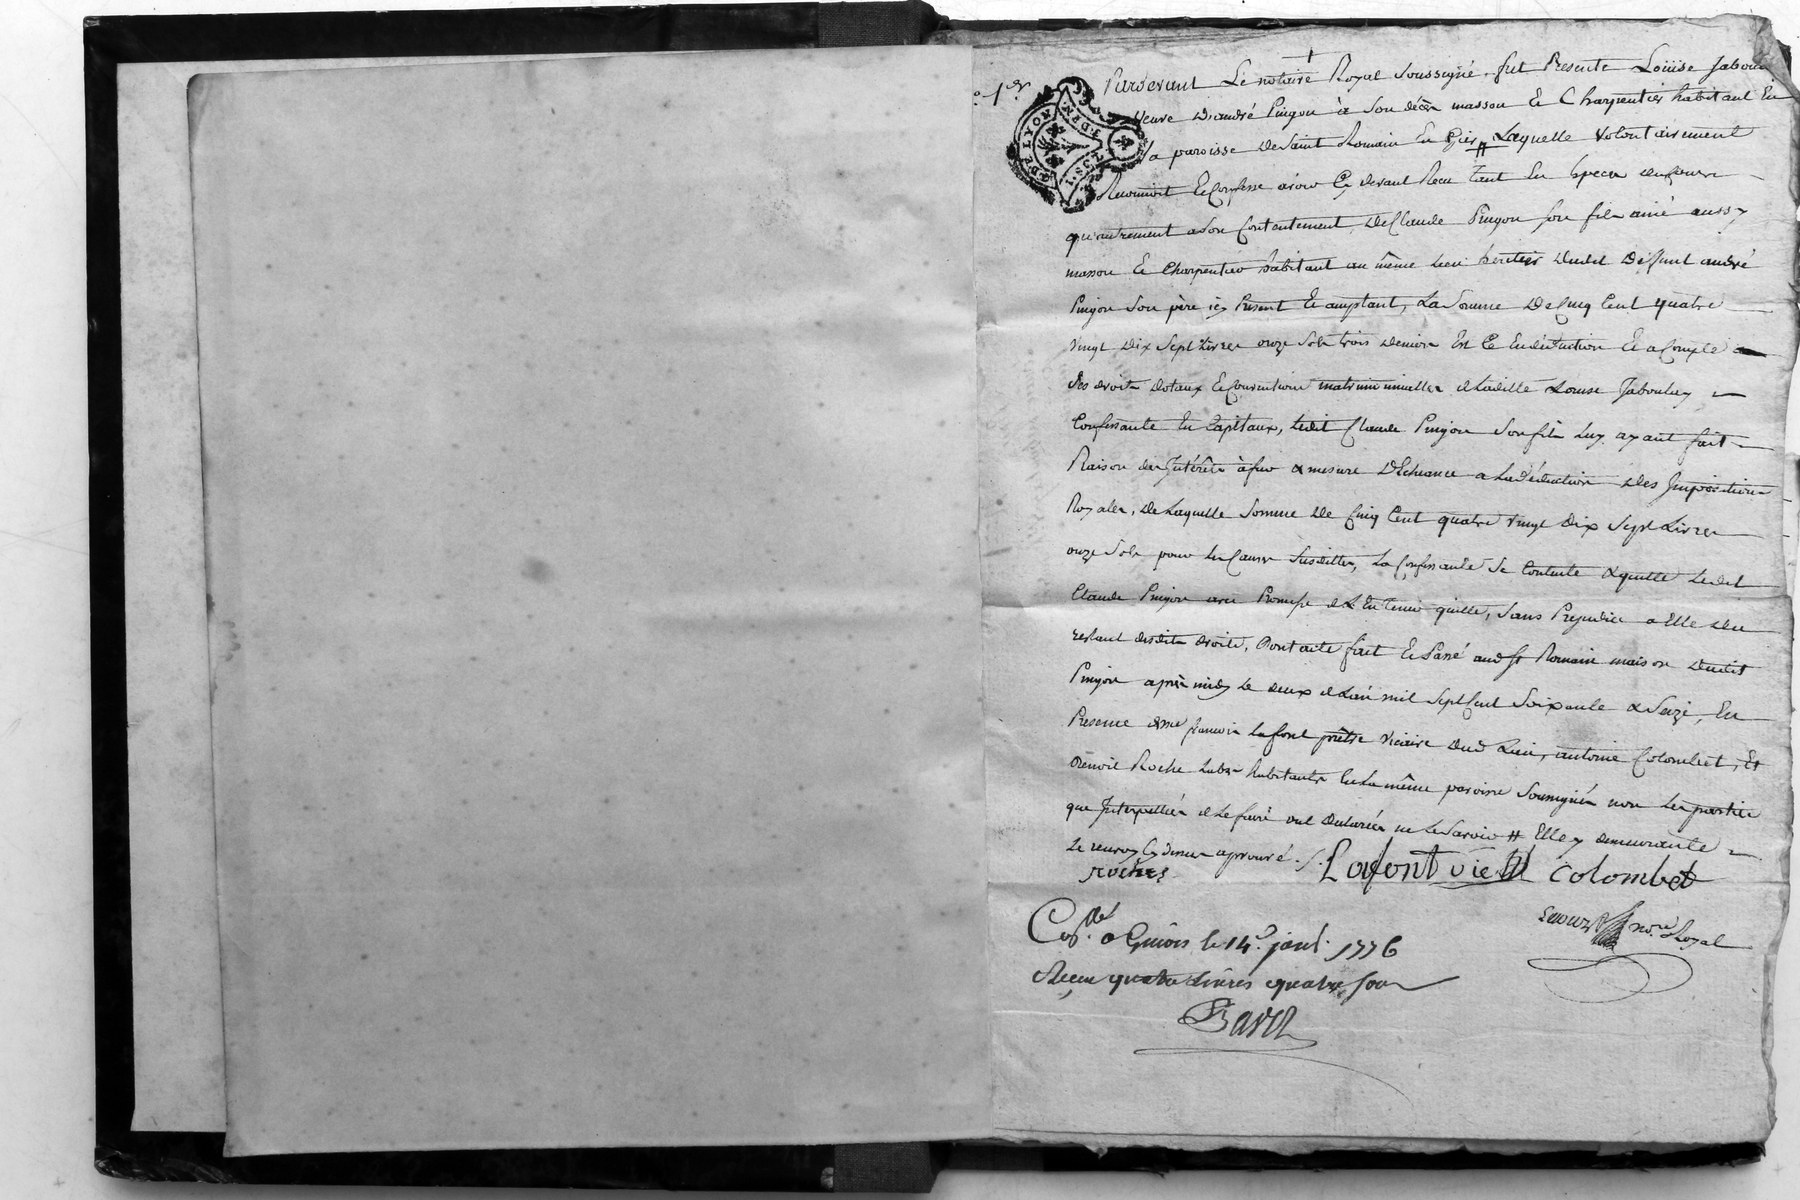 1er
Pardevant Le notaire Royal Soussigné, fut Presente Loüise Jaboul
G. DE LYON
2. S. 1.
veuve D'andré Pinjon à son décès masson & Charpentier habitant En
la paroisse De Saint Romain En Gier # Laquelle volontairement
Reconnoit & Confesse avoir Cy devant Reçu tant En Especes de Cours
qu'autrement a son Contentement, De Claude Pinjon son fils ainé aussy
masson & Charpentier habitant au même Lieu heritier dudit Deffunt andré
Pinjon son père icy Present & acceptant, La Somme De Cinq Cent quatre
vingt Dix Sept Livres onze Sols trois Deniers Et Ce En déduction & a Compte
des droits dotaux & Conventions matrimonialles de Laditte Louise Jabouley
Confessante En Capitaux, Ledit Claude Pinjon son fils Luy ayant fait
Raison des Intérêts à fur & mesure D'Echeance a La Déduction des Impositions
Royales, De Laquelle Somme De Cinq Cent quatre vingt Dix Sept Livres
onze Sols pour Les Causes Susdittes, La Confessante Se Contente & quitte Ledit
Claude Pinjon avec Promesse de L'En Tenir quitte, Sans Prejudice a Elle du
restant desdits droits, Dont acte fait & Passé aud St Romain maison dudit
Pinjon après midy Le deux de L'an mil Sept Cent Soixante & Seize, En
Presence de me francois Lafont prêtre vicaire dud Lieu, antoine Colombet, Et
Benoit Roche habitants En La même paroisse Soussignés non Les parties
que Interpellées de Le faire ont declarées ne Le Savoir # Elle y demeurante
Le renvoy Cy dessus aprouvé ./.
roches Lafont vic Colombet
no.re Royal
Con.llé a Givors le 14.e janv. 1776
Recu quatre Livres quatre sous